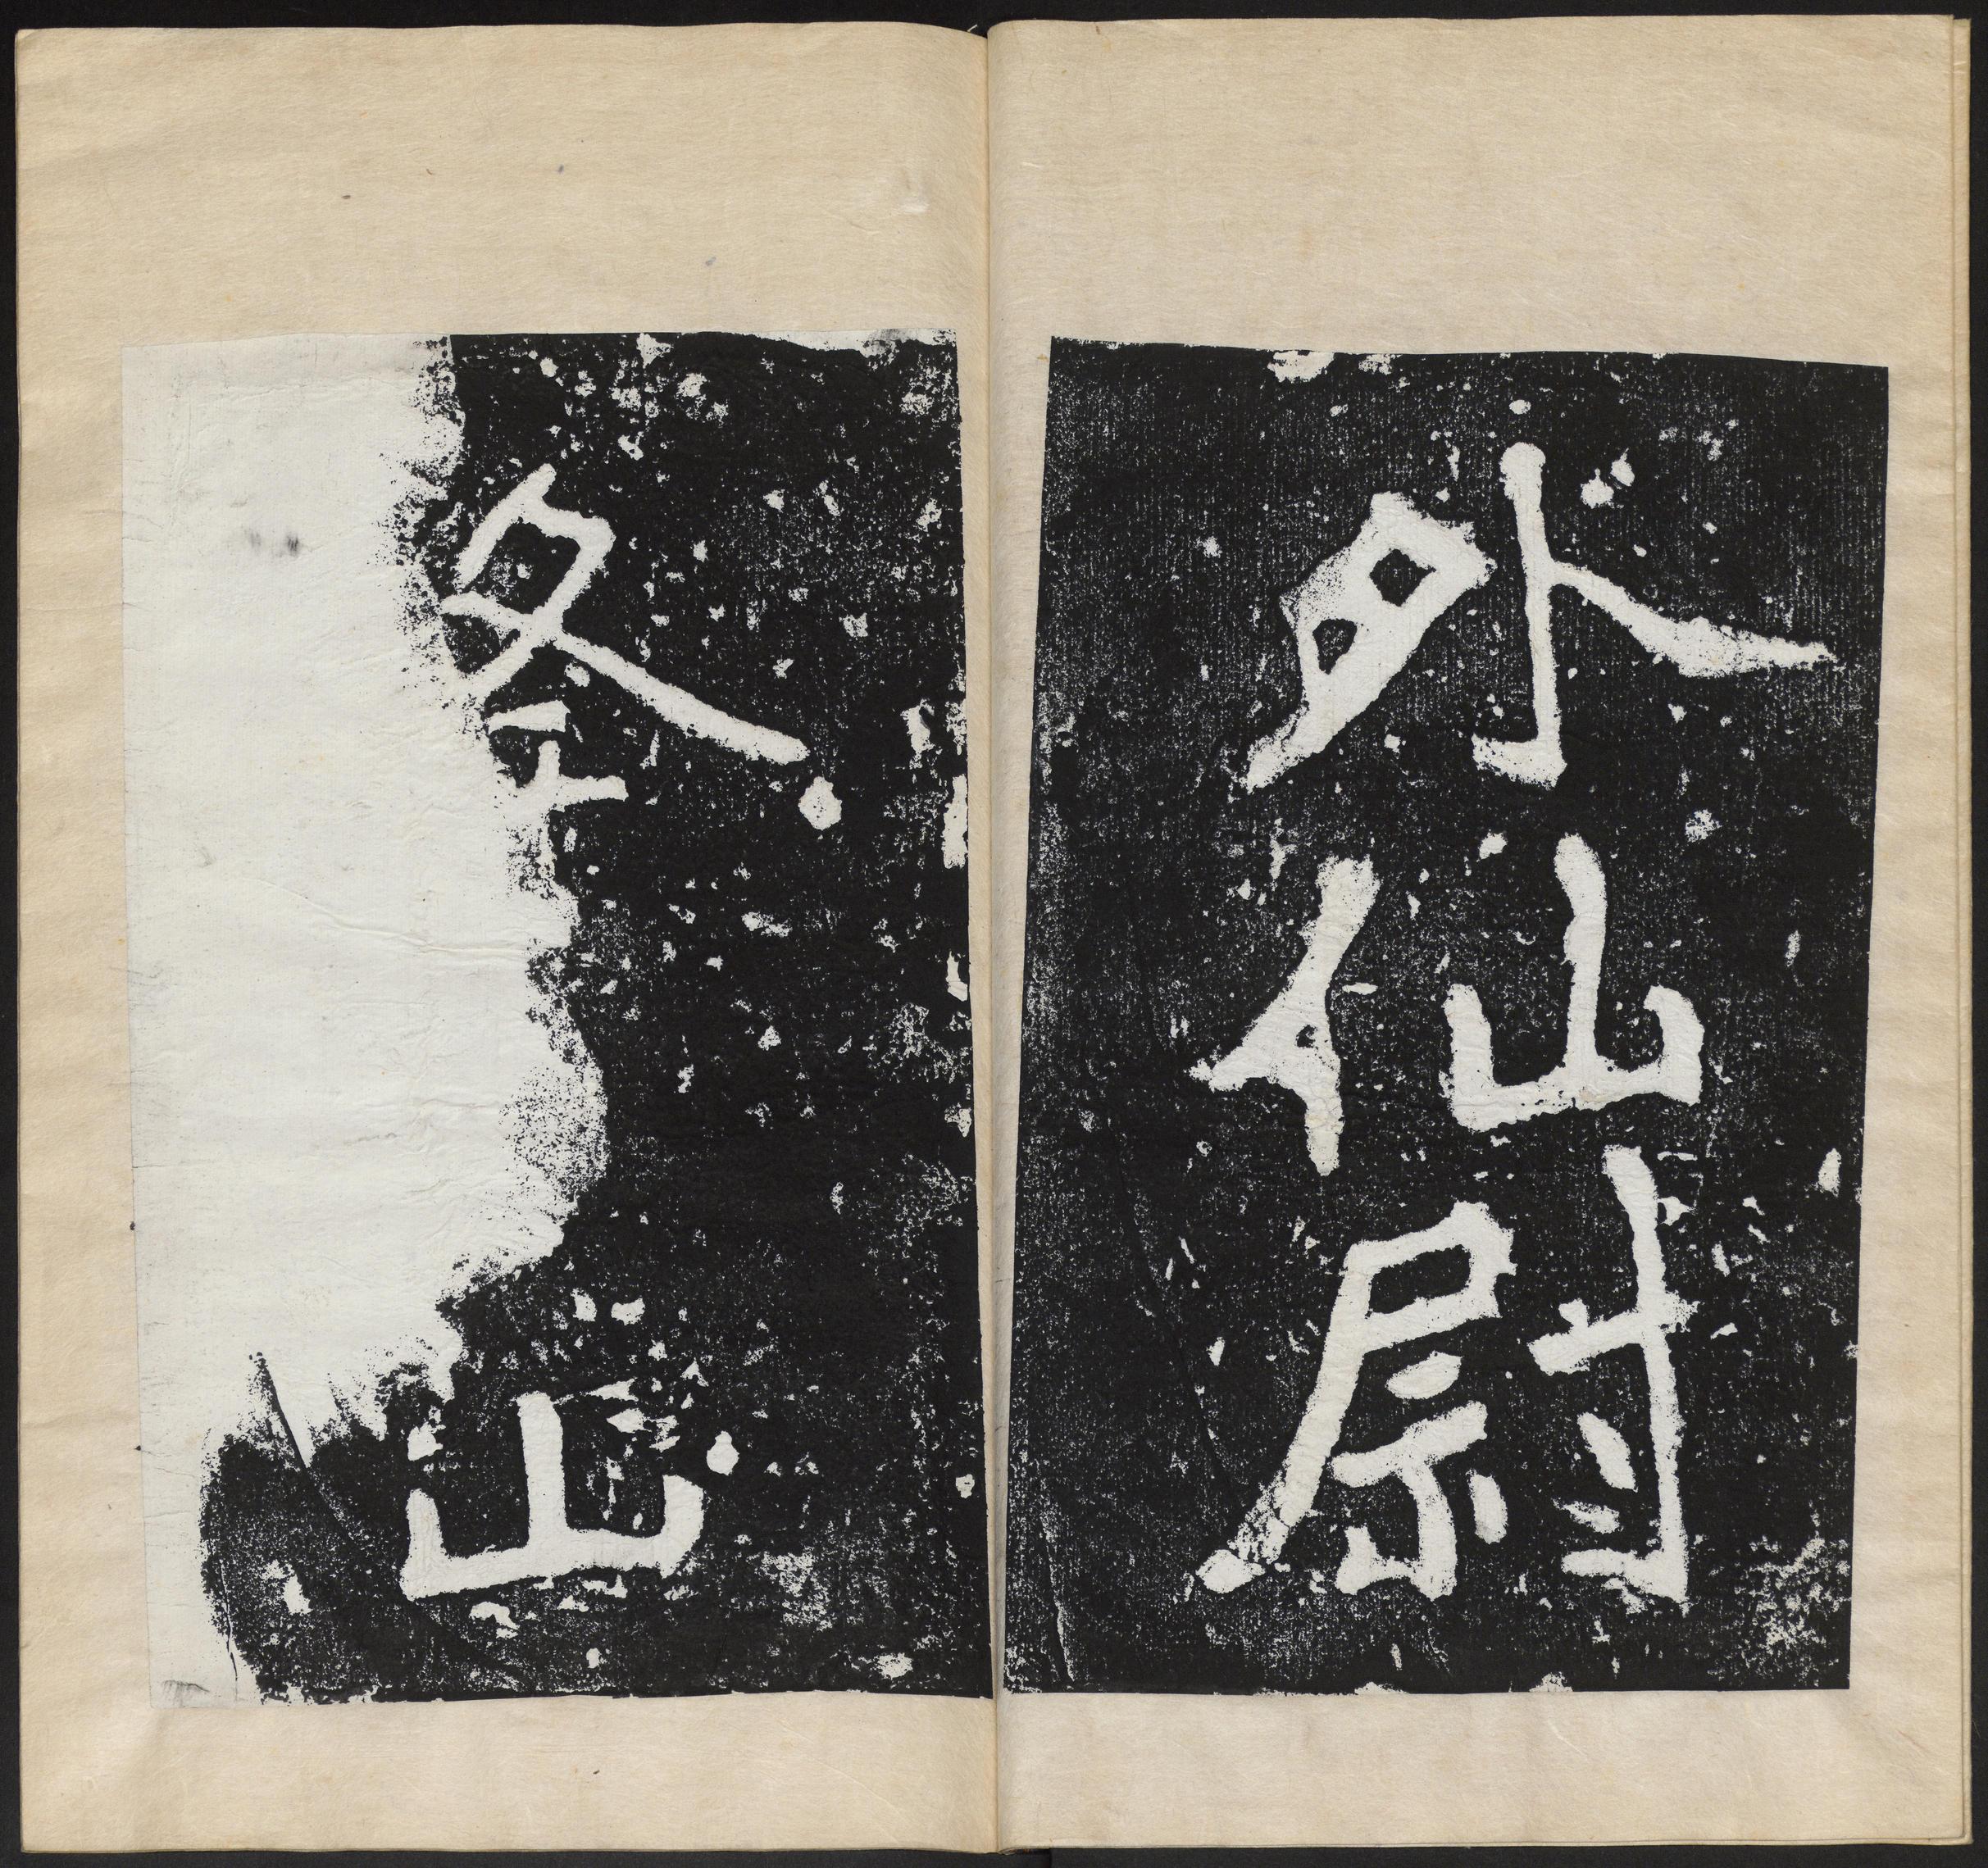 外仙尉
山